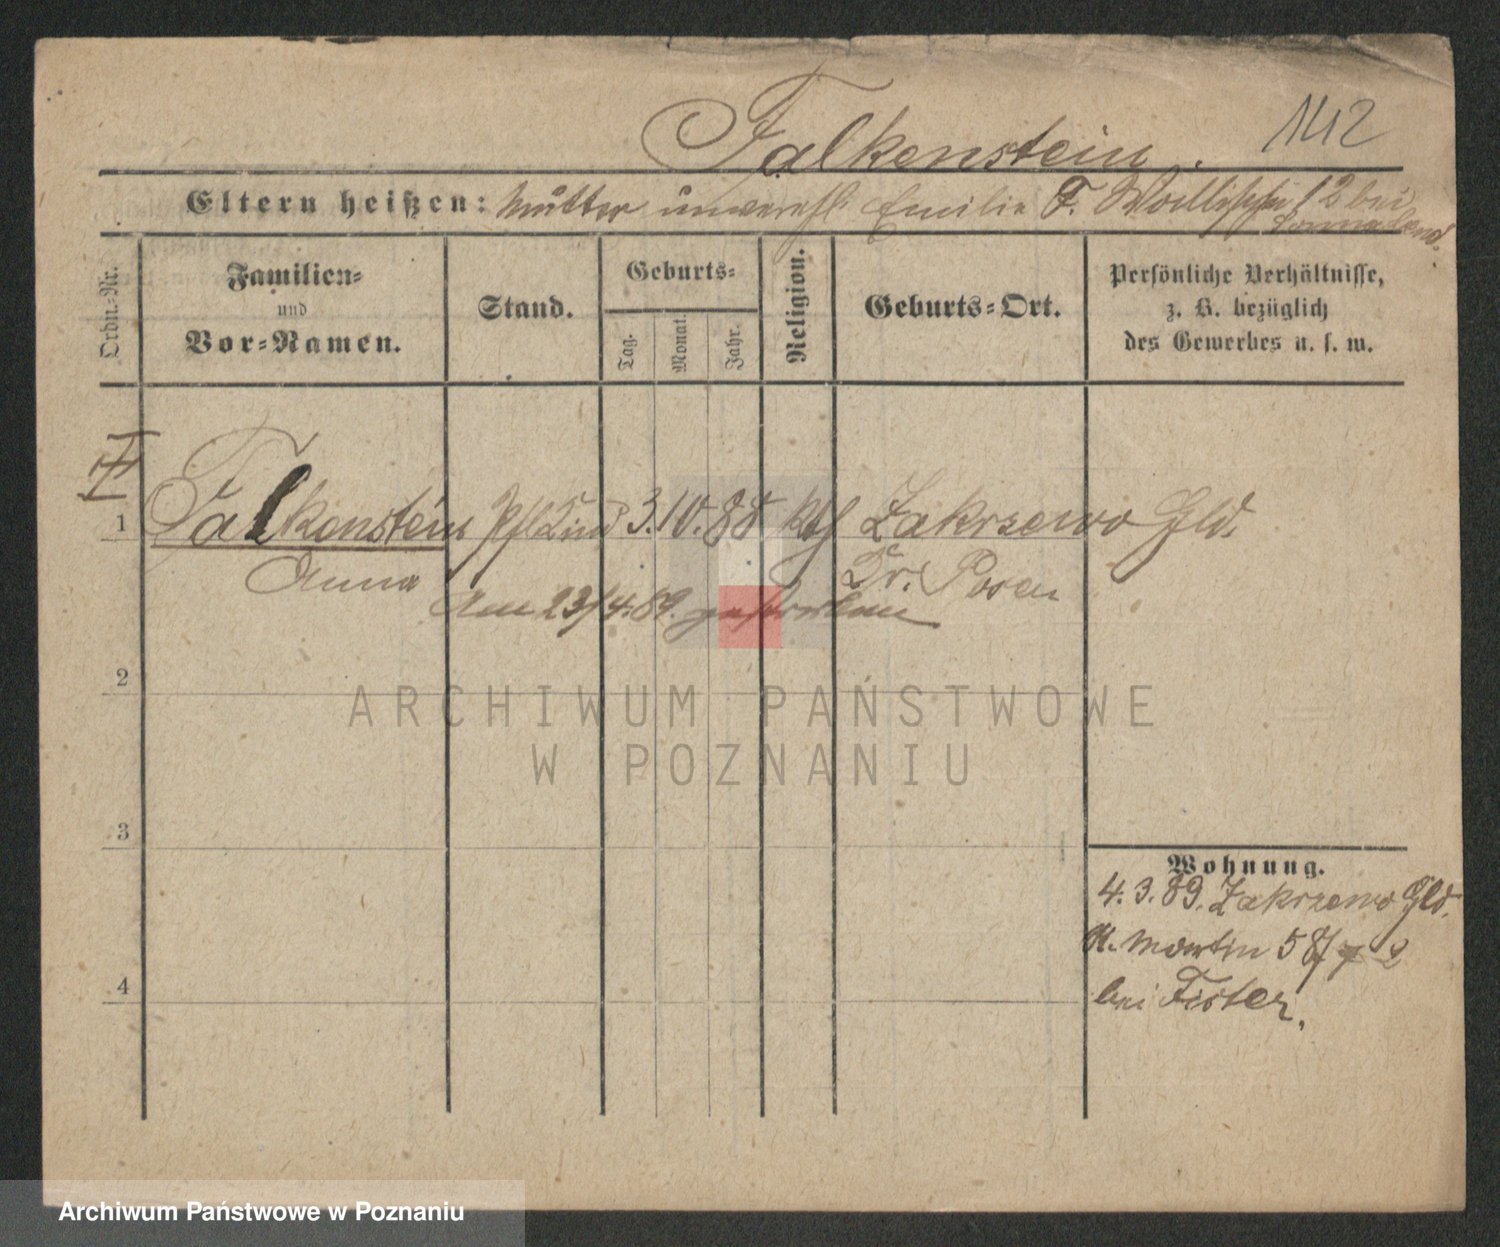 Falkenstein. 142
Eltern heißen: Mutter unverehl. Emilie F. 12 bei
Ordn.-Nr.
Familien-
und
Vor-Namen.
Stand.
Geburts-
Tag. Monat. Jahr.
Religion.
Geburts-Ort.
Persönliche Verhältnisse,
z. B. bezüglich
des Gewerbes u. s. w.
1 Falkenstein Pfl Kind 3. 10. 88 kth Zakrzewo Gld.
Anna Kr. Posen
Am 23/4. 89. gestorben
2
ARCHIWUM PAŃSTWOWE
W POZNANIU
3
4
Wohnung.
4. 3. 89. Zakrzewo Gld.
St. Martin 58/
bei Fister.
Archiwum Państwowe w Poznaniu